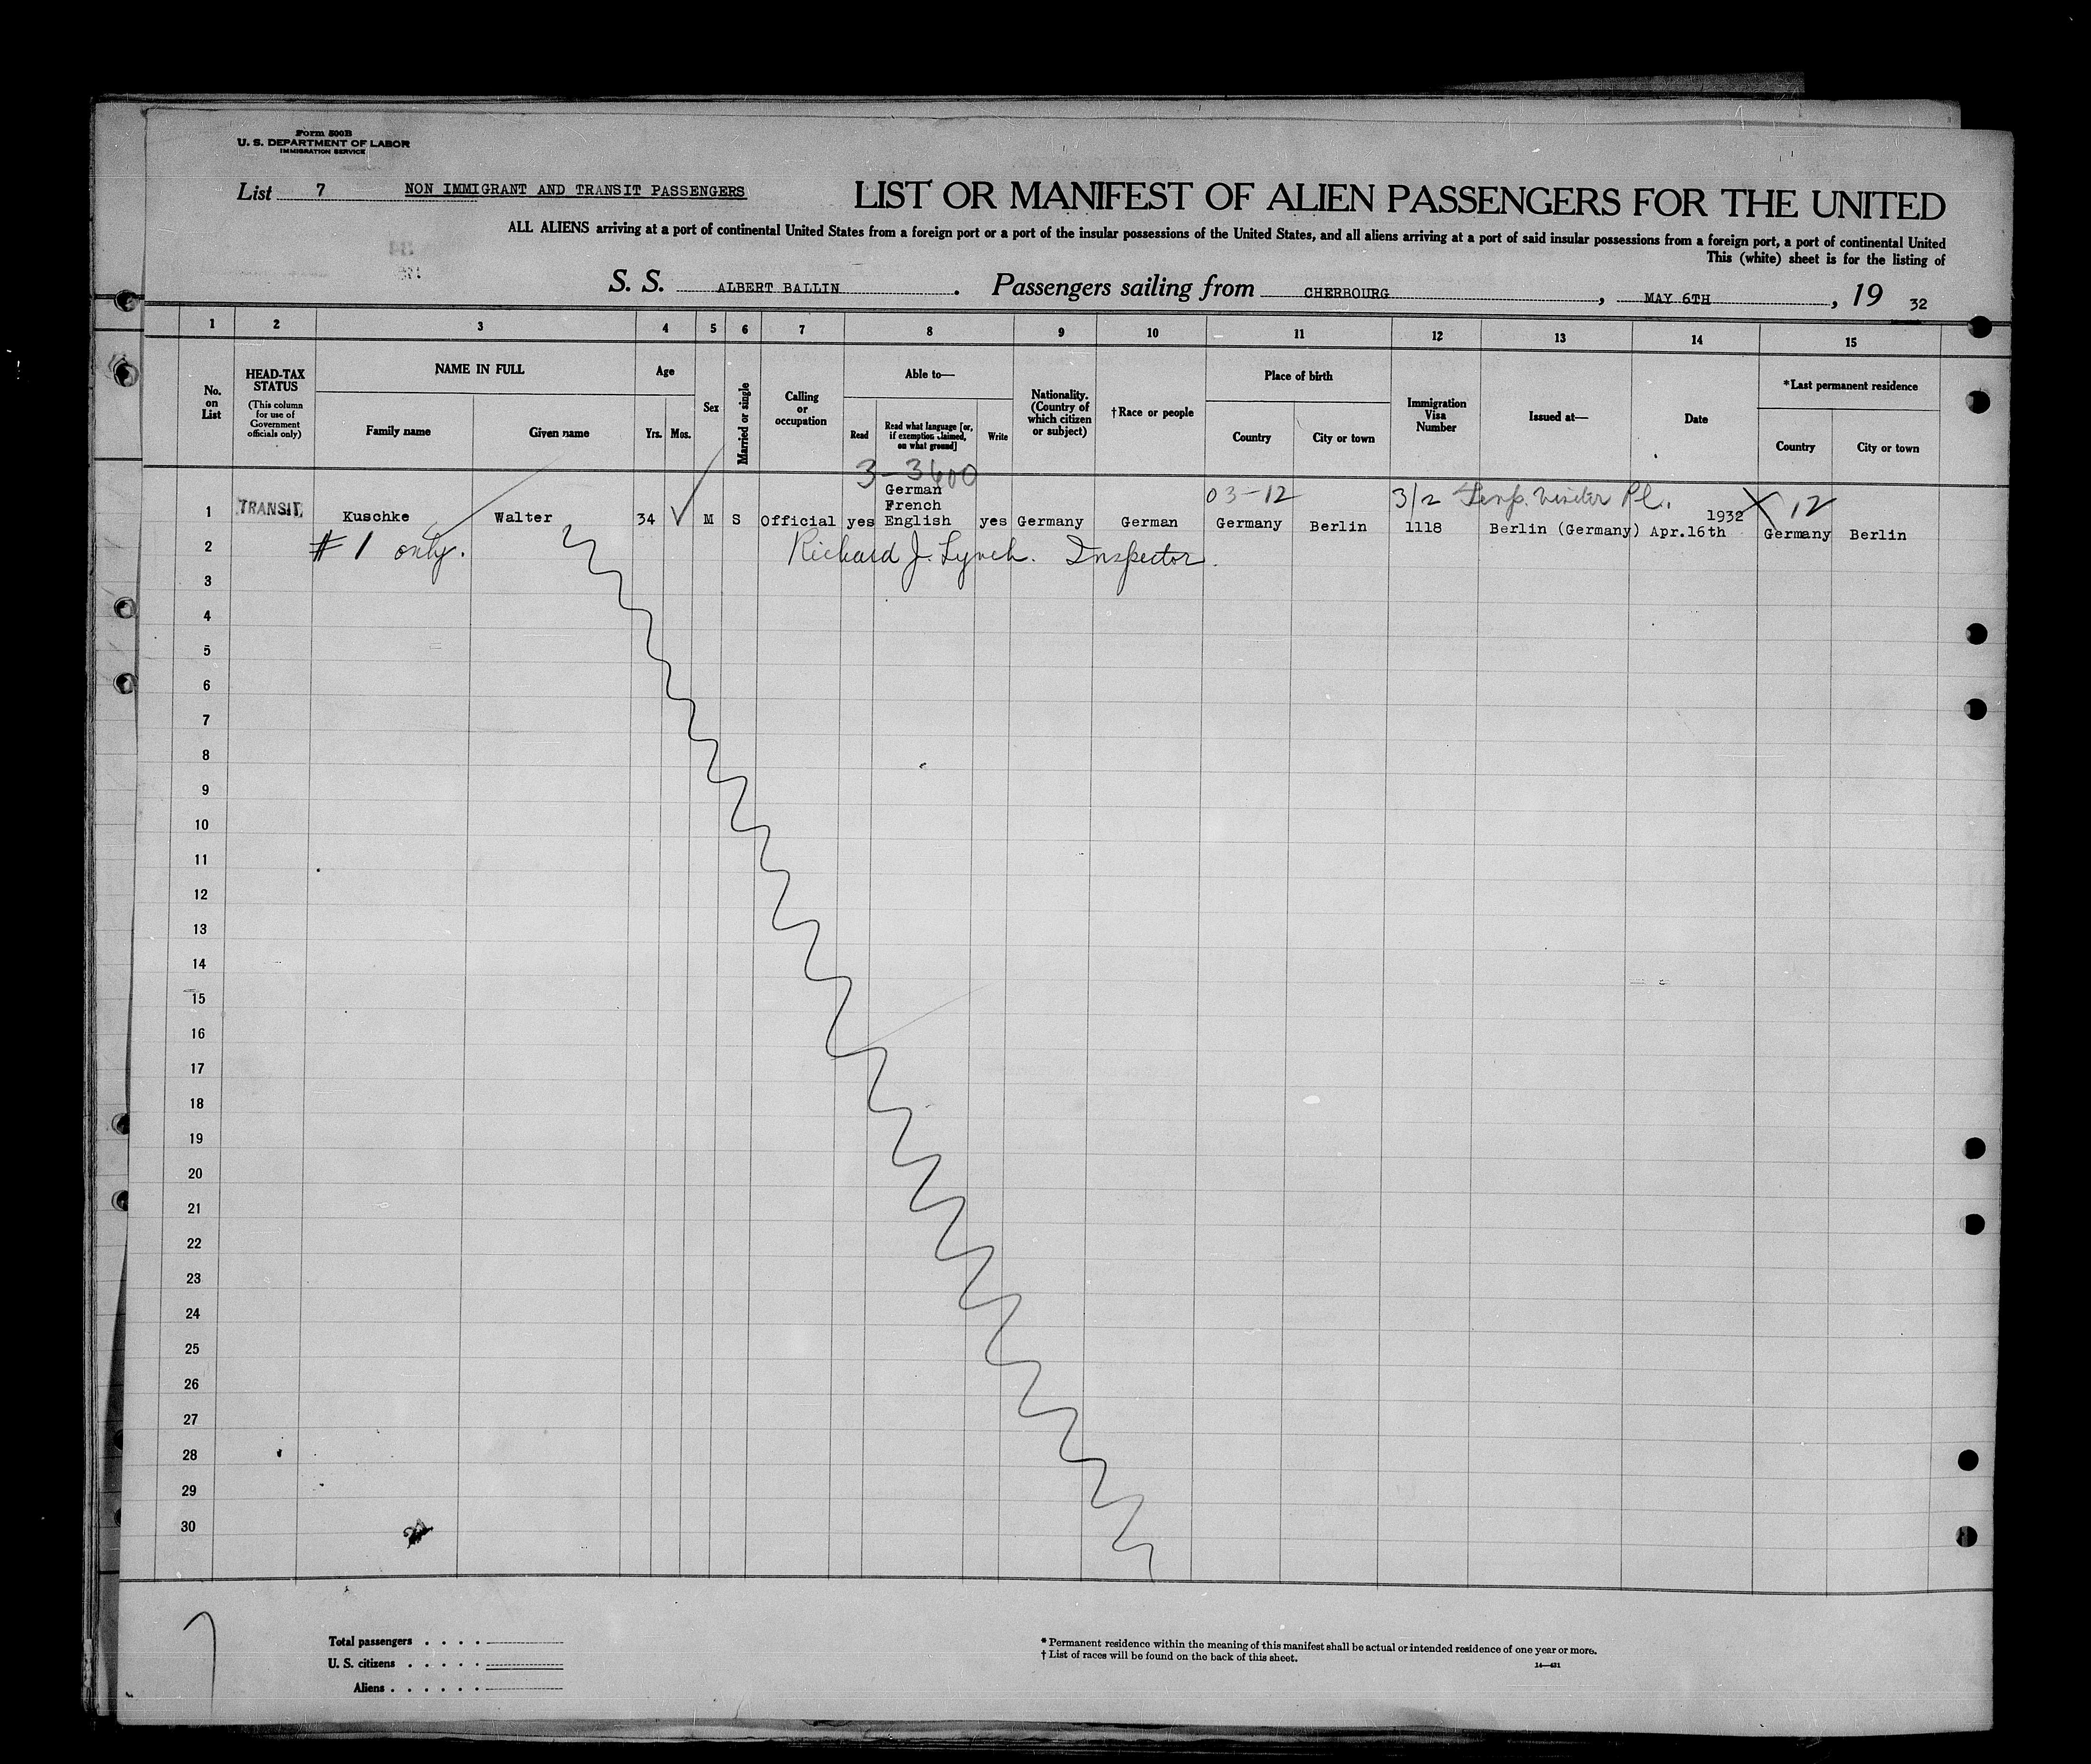 Form 500B
U. S. DEPARTMENT OF LABOR
IMMIGRATION SERVICE
List 7 NON IMMIGRANT AND TRANSIT PASSENGERS
LIST OR MANIFEST OF ALIEN PASSENGERS FOR THE UNITED
ALL ALIENS arriving at a port of continental United States from a foreign port or a port of the insular possessions of the United States, and all aliens arriving at a port of said insular possessions from a foreign port, a port of continental United
This (white) sheet is for the listing of
S. S. ALBERT BALLIN . Passengers sailing from CHERBOURG , MAY 6TH , 19 32
1 2 3 4 5 6 7 8 9 10 11 12 13 14 15
No. on List
HEAD-TAX STATUS
(This column for use of Government officials only)
NAME IN FULL
Family name
Given name
Age
Yrs.
Mos.
Sex
Married or single
Calling or occupation
Able to—
Read
Read what language [or, if exemption claimed, on what ground]
Write
Nationality. (Country of which citizen or subject)
†Race or people
Place of birth
Country
City or town
Immigration Visa Number
Issued at—
Date
*Last permanent residence
Country
City or town
3-3600
03-12
3/2 Temp. Visitor Pl.
X 12
1 TRANSIT Kuschke Walter 34 √ M S Official yes German French English yes Germany German Germany Berlin 1118 Berlin (Germany) Apr.16th 1932 Germany Berlin
2 # 1 only. Richard J. Lynch. Inspector.
3
4
5
6
7
8
9
10
11
12
13
14
15
16
17
18
19
20
21
22
23
24
25
26
27
28
29
30
Total passengers . . . .
U. S. citizens . . . . .
Aliens . . . . . .
* Permanent residence within the meaning of this manifest shall be actual or intended residence of one year or more.
† List of races will be found on the back of this sheet.
14—421